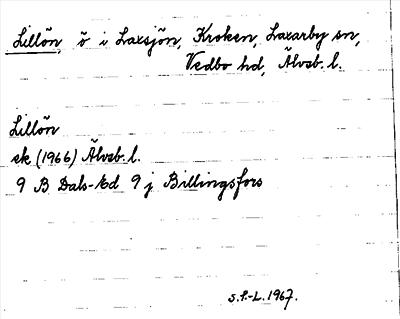 Lillön, ö i Laxsjön, Kroken, Laxarby sn,
Vedbo hd, Älvsb. l.
Lillön
ek (1966) Älvsb. l.
9 B Dals-Ed 9 j Billingsfors
S.F.-L. 1967.